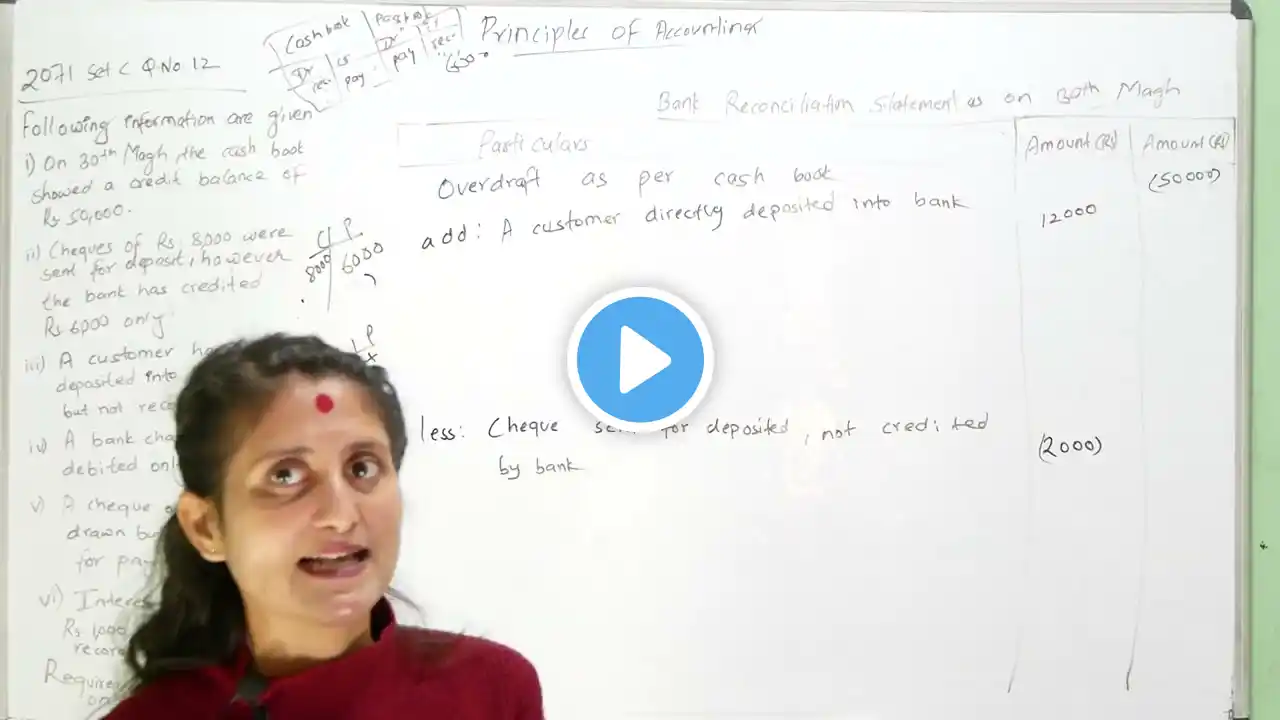 Principles of Accounting
2071 Set C Q.No.12
Cash book | Pass book
Dr | Cr | Dr | Cr
rec. | pay | pay | rec.
Following information are given
i) On 30th Magh, the cash book
showed a credit balance of
Rs 50,000.
ii) Cheques of Rs. 8,000 were
sent for deposit, however
the bank has credited
Rs 6,000 only
C | P
8000 | 6000
iii) A customer
deposited into
but not
P
iv) A bank
debited
v) A cheque
drawn
for
vi)
Rs 1,000
Bank Reconciliation Statement as on 30th Magh
Particulars | Amount (Rs) | Amount (Rs)
Overdraft as per cash book (50000)
add: A customer directly deposited into bank 12000
less: Cheque for deposited, not credited
by bank (2000)